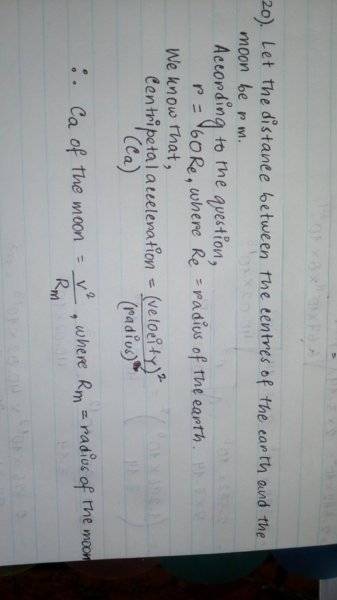 20). Let the distance between the centres of the earth and the
moon be r m.
According to the question,
r = 60 Re, where Re = radius of the earth.
We know that,
centripetal acceleration = (velocity)²
(Ca) (radius)
∴ Ca of the moon = V² , where Rm = radius of the moon
Rm